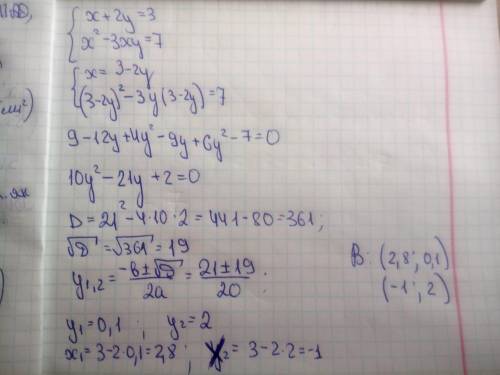 x + 2y = 3
x² - 3xy = 7
x = 3-2y
(3-2y)² - 3y(3-2y) = 7
9 - 12y + 4y² - 9y + 6y² - 7 = 0
10y² - 21y + 2 = 0
D = 21² - 4·10·2 = 441 - 80 = 361;
√D = √361 = 19
y₁,₂ = (-b±√D)/2a = (21±19)/20 ;
B: (2,8; 0,1)
(-1; 2)
y₁ = 0,1 ; y₂ = 2
x₁ = 3-2·0,1 = 2,8 ; x₂ = 3-2·2 = -1